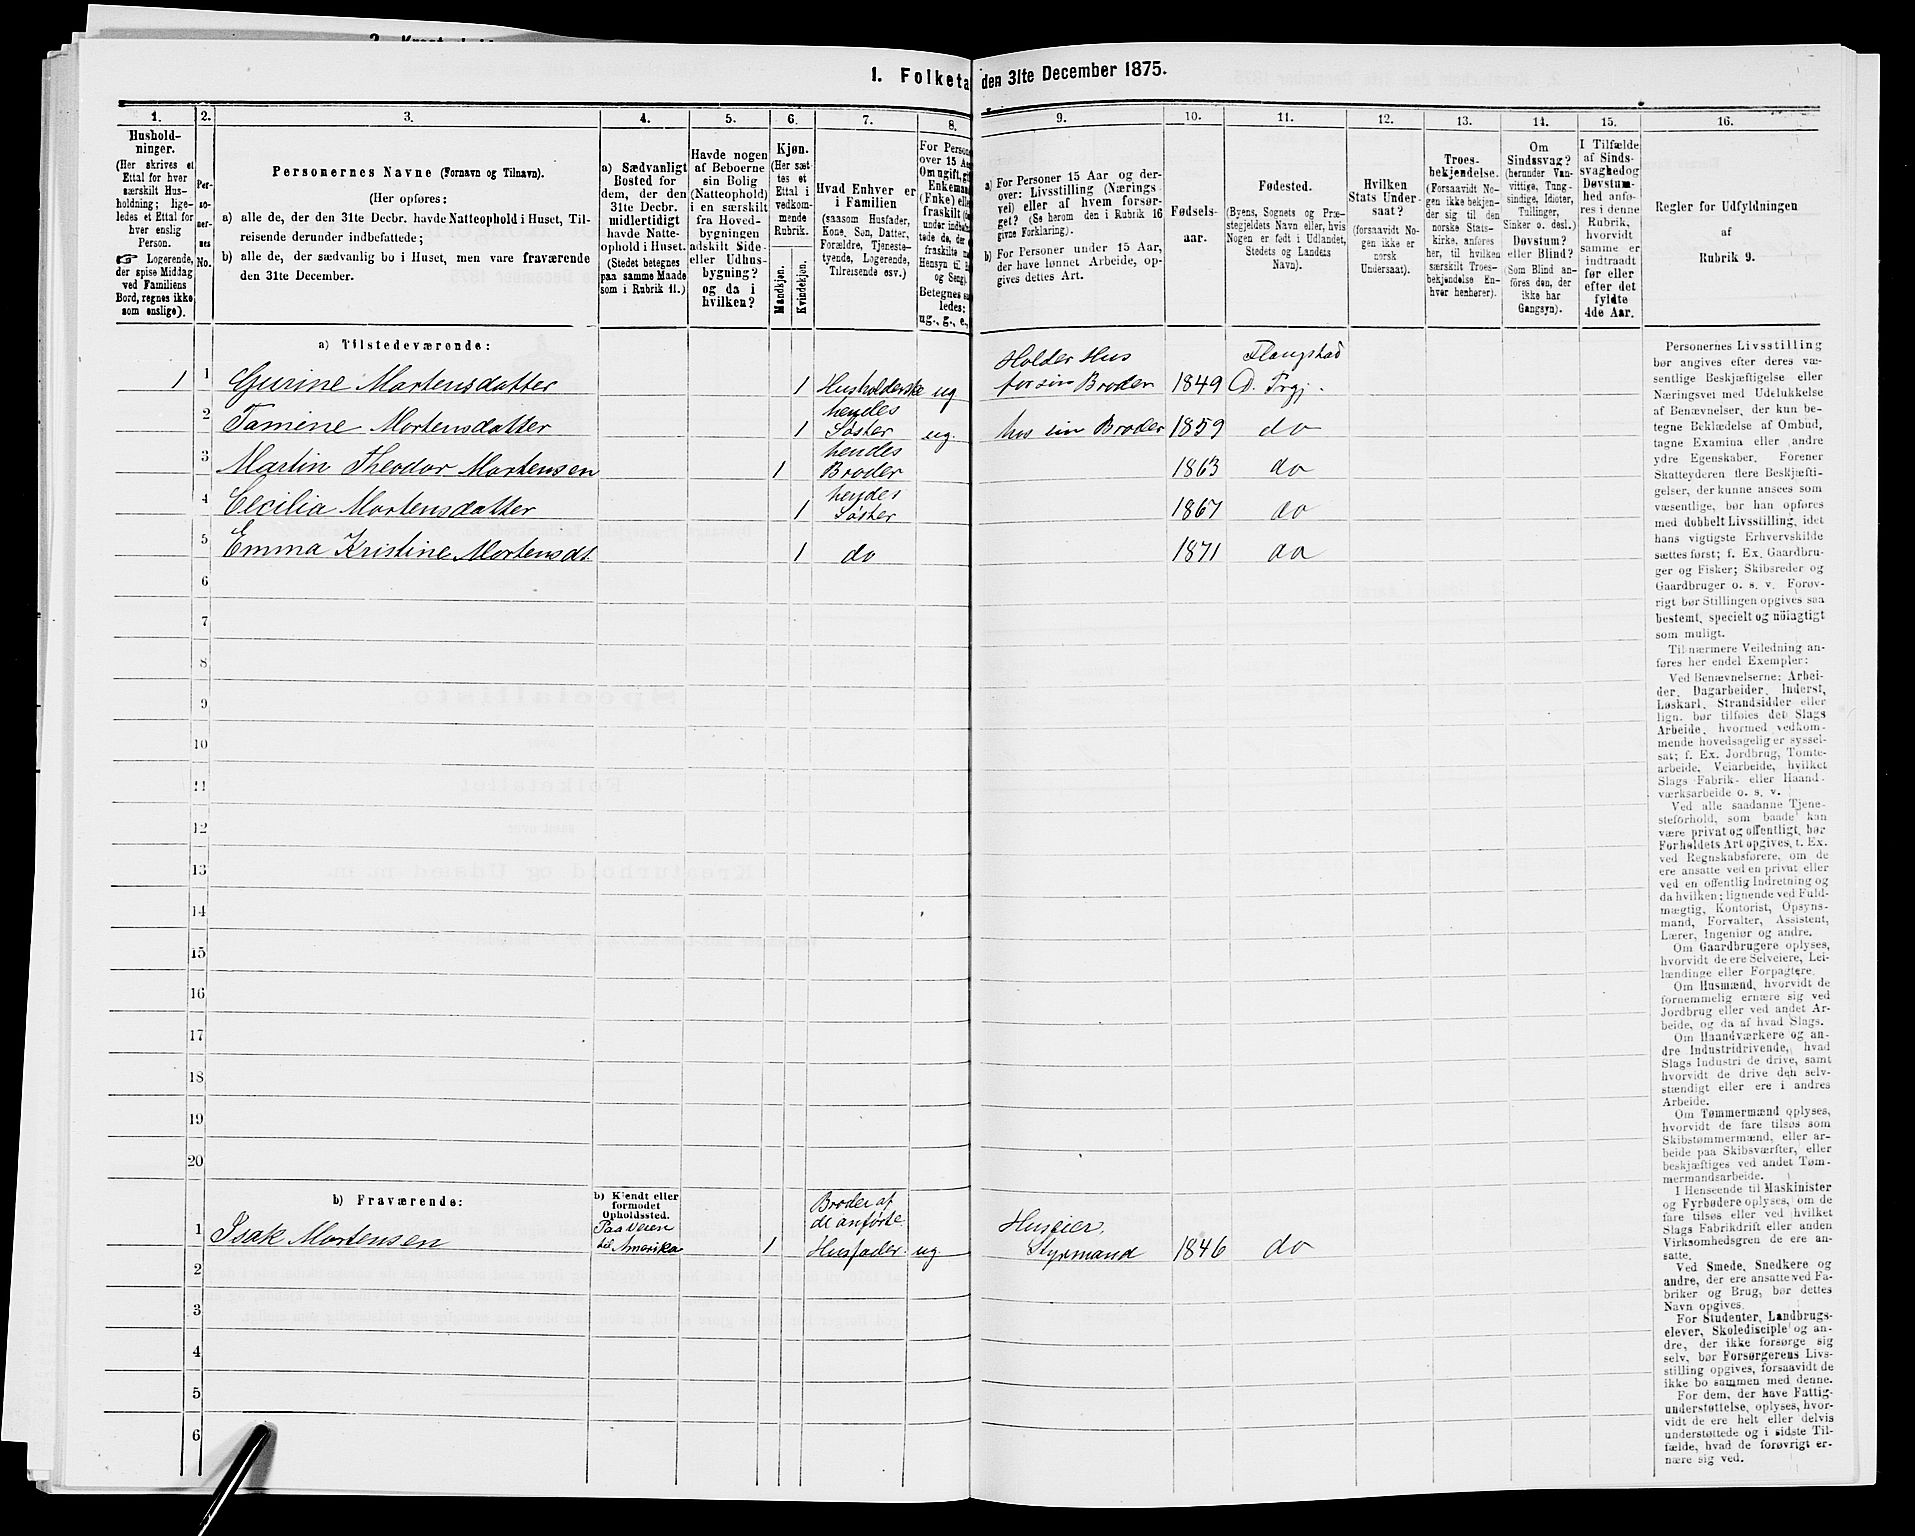 2. Kreat
1. Folketa den 31te December 1875.
1.
Hushold-
ninger.
(Her skrives et
Ettal for hver
særskilt Hus-
holdning; lige-
ledes et Ettal for
hver enslig
Person.
☞ Logerende,
der spise Middag
ved Familiens
Bord, regnes ikke
som enslige).
2.
Per-
so-
ner-
nes
No.
3.
Personernes Navne (Fornavn og Tilnavn).
(Her opføres:
a) alle de, der den 31te Decbr. havde Natteophold i Huset, Til-
reisende derunder indbefattede;
b) alle de, der sædvanlig bo i Huset, men vare fraværende
den 31te December.
4.
a) Sædvanligt
Bosted for
dem, der den
31te Decbr.
midlertidigt
havde Natte-
ophold i Huset.
(Stedet betegnes
paa samme Maade
som i Rubrik 11.)
5.
Havde nogen
af Beboerne
sin Bolig
(Natteophold)
i en særskilt
fra Hoved-
bygningen
adskilt Side-
eller Udhus-
bygning?
og da i
hvilken?
6.
Kjøn.
(Her sæt
tes et
Ettal i
vedkom-
mende
Rubrik.
Mandkjøn.
Kvindekjøn.
7.
Hvad Enhver er
i Familien
(saasom Husfader,
Kone, Søn, Datter,
Forældre, Tjeneste-
tyende, Logerende,
Tilreisende osv.)
8.
For Persone
over 15 Aa
Om ugift, gif
Enkeman
(Enke) elle
fraskilt (
under indbe
tede de, der
fraskilte
Hensyn til B
og Seng).
Betegnes sa
ledes:
ug., g., e.,
9.
a) For Personer 15 Aar og der-
over: Livsstilling (Nærings
vei) eller af hvem forsør-
get? (Se herom den i Rubrik 16
givne Forklaring).
b) For Personer under 15 Aar,
der have lønnet Arbeide, op-
gives dettes Art.
10.
Fødsels-
aar.
11.
Fødested.
(Byens, Sognets og Præ-
stegjeldets Navn eller, hvis
Nogen er født i Udlandet,
Stedets og Landets
Navn).
12.
Hvilken
Stats Under-
saat?
(forsaavidt No-
gen ikke er
norsk
Undersaat).
13.
Troes-
bekjendelse.
(Forsaavidt No-
gen ikke bekjen-
der sig til den
norske Stats-
kirke, anføres
her, til hvilken
særskilt Troes-
bekjendelse En-
hver henhører).
14.
Om
Sindssvag?
(herunder Van-
vittige, Tung-
sindige, Idioter,
Tullinger,
Sinker o. desl.)
Døvstum?
eller Blind?
(Som Blind an-
føres den, der
ikke har
Gangsyn).
15.
I Tilfælde
af Sinds-
svaghed og
Døvstum-
hed anfø-
res i denne
Rubrik,
hvorvidt
samme er
indtraadt
før eller
efter det
fyldte
4de Aar.
16.
Regler for Udfyldningen
af
Rubrik 9.
a) Tilstedeværende:
1 1 Gurine Martensdatter 1 Husholderske ug Holder Hus for sin Broder 1849 D. Prgj.
2 Tamine Mortensdatter 1 hendes Søster ug. hos sin Broder 1859 do
3 Martin Theodor Mortensen 1 hendes Broder 1863 do
4 Cecilia Mortensdatter 1 hendes Søster 1867 do
5 Emma Kristine Mortensdt. 1 do 1871 do
6
7
8
9
10
11
12
13
14
15
16
17
18
19
20
b) Fraværende:
b) Kjendt eller
formodet
Opholdssted.
1 Isak Mortensen Paa Veien til Amerika 1 Broder af de anførte. Husfader. ug. Huseier, Styrmand 1846 do
2
3
4
5
6
Personernes Livsstilling
bør angives efter deres væ-
sentlige Beskjæftigelse eller
Næringsvei med Udelukkelse
af Benævnelser, der kun be-
tegne Beklædelse af Ombud,
tagne Examina eller andre
ydre Egenskaber. Forener
Skatteyderen flere Beskjæfti-
gelser, der kunne ansees som
væsentlige, bør han opføres
med dobbelt Livsstilling, idet
hans vigtigste Erhvervskilde
sættes først; f. Ex. Gaardbru-
ger og Fisker; Skibsreder og
Gaardbruger o. s. v. Forøv-
rigt bør Stillingen opgives saa
bestemt, specielt og nöiagtigt
som muligt.
Til nærmere Veiledning an-
føres her endel Exempler:
Ved Benævnelserne: Arbei-
der, Dagarbeider, Inderst,
Løskarl, Strandsidder eller
lign. bør tilføies det Slags
Arbeide, hvormed vedkom-
mende hovedsagelig er syssel-
sat; f. Ex. Jordbrug, Tomte-
arbeide, Veiarbeide, hvilket
Slags Fabrik- eller Haand-
værksarbeide o. s. v.
Ved alle saadanne Tjene-
steforhold, som baade kan
være privat og offentligt, bør
Forholdets Art opgives, f. Ex.
ved Regnskabsførere, om de
ere ansatte ved en privat eller
ved en offentlig Indretning og
da hvilken; lignende ved Fuld-
mægtig, Kontorist, Opsyns-
mand, Forvalter, Assistent,
Lærer, Ingeniør og andre.
Om Gaardbrugere oplyses,
hvorvidt de ere Selveiere, Lei-
lændinge eller Forpagtere.
Om Husmænd, hvorvidt de
fornemmelig ernære sig ved
Jordbrug eller ved andet Ar-
beide, og da af hvad Slags.
Om Haandværkere og an-
dre Industridrivende, hvad
Slags Industri de drive, samt
hvorvidt de drive den selv-
stændigt eller ere i andres
Arbeide.
Om Tømmermænd oplyses,
hvorvidt de fare tilsøs som
Skibstømmermænd, eller ar-
beide paa Skibsværfter, eller
beskjæftiges ved andet Tøm-
mermandsarbeide.
I Henseende til Maskinister
og Fyrbødere oplyses, om de
fare tilsøs eller ved hvilket
Slags Fabrikdrift eller anden
Virksomhedsgren de ere an-
satte.
Ved Smede, Snedkere og
andre, der ere ansatte ved Fa-
briker og Brug, bør dettes
Navn opgives.
For Studenter, Landbrugs-
elever, Skoledisciple og an-
dre, der ikke forsørge sig
selv, bør Forsørgerens Livs-
stilling opgives, forsaavidt de
ikke bo sammen med denne.
For dem, der have Fattig-
understøttelse, oplyses, hvor-
vidt de ere helt eller delvis
understøttede og i sidste Til-
fælde, hvad de forøvrigt er-
nære sig ved.